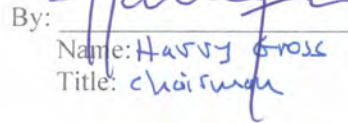 By:
Name: Harry Gross
Title: Chairman